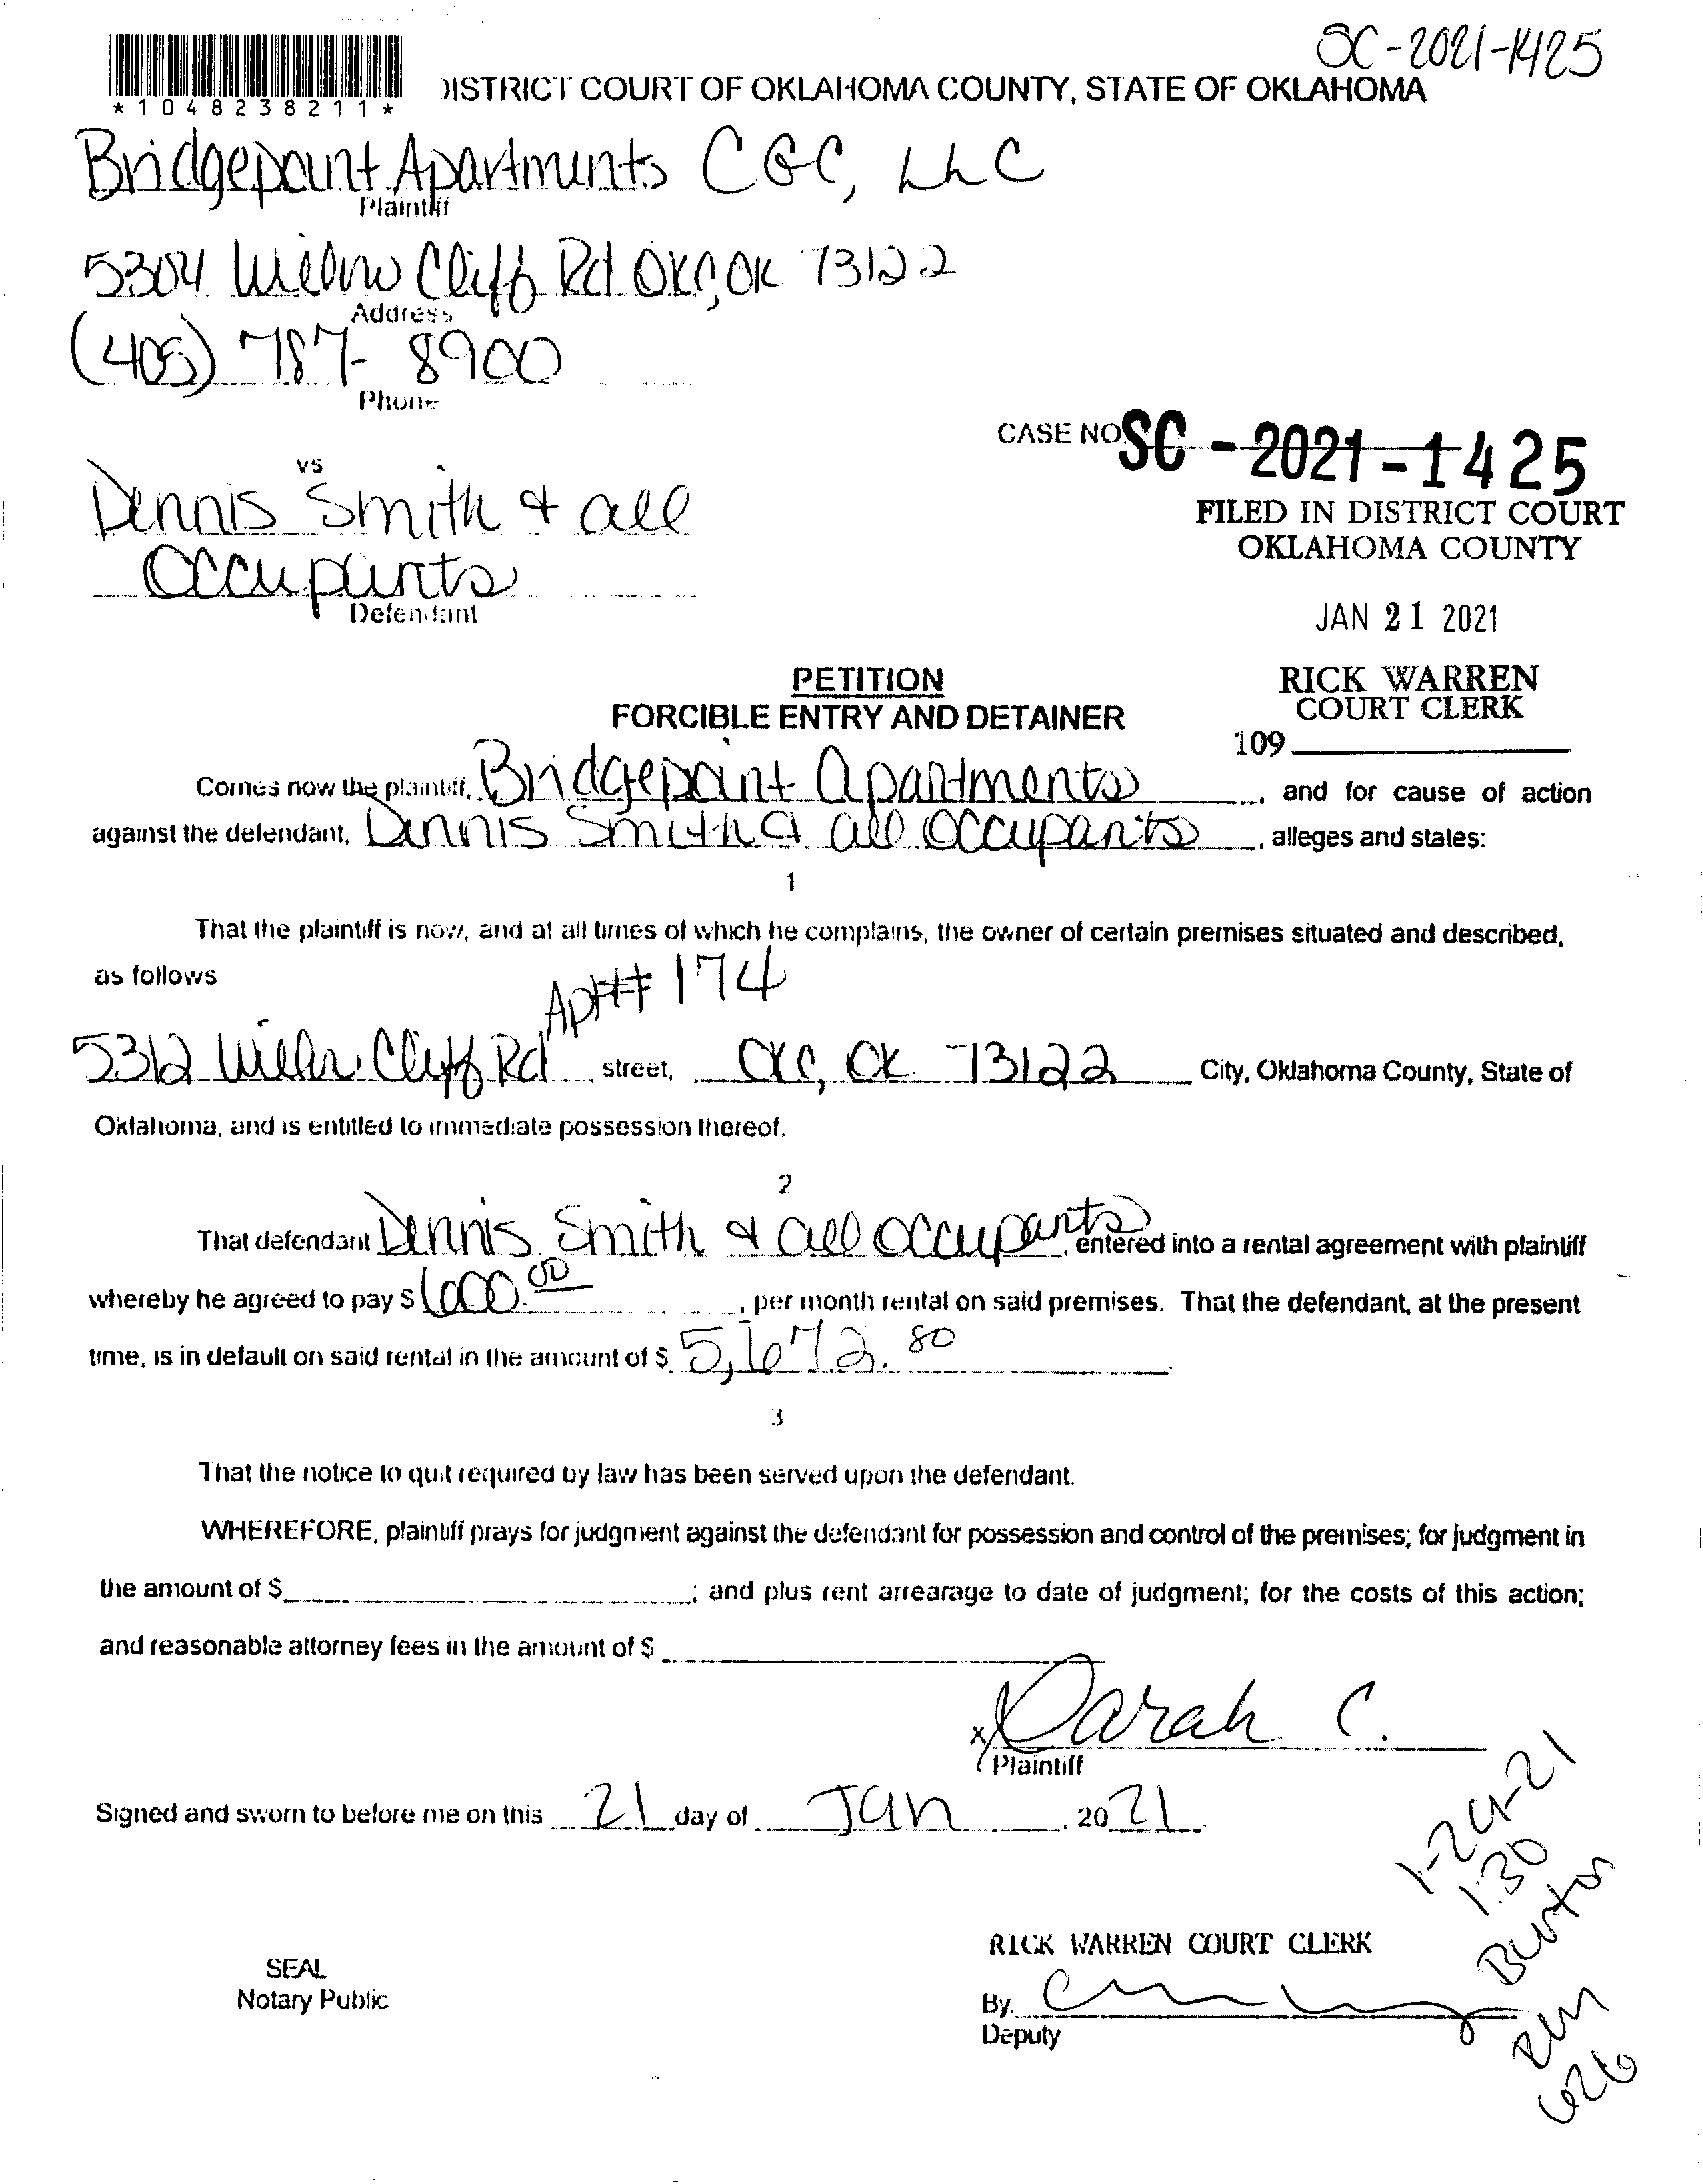 SC-2021-1425
*1048238211*
DISTRICT COURT OF OKLAHOMA COUNTY, STATE OF OKLAHOMA
Bridgepoint Apartments CGC, LLC
Plaintiff
5304 Willow Cliff Rd OKC, OK 73122
Address
(405) 787-8900
Phone
CASE NO SC-2021-1425
vs
Dennis Smith & all
Occupants
Defendant
FILED IN DISTRICT COURT
OKLAHOMA COUNTY
JAN 21 2021
RICK WARREN
COURT CLERK
109
PETITION
FORCIBLE ENTRY AND DETAINER
Comes now the plaintiff, Bridgepoint Apartments, and for cause of action
against the defendant, Dennis Smith & all occupants, alleges and states:
1
That the plaintiff is now, and at all times of which he complains, the owner of certain premises situated and described,
as follows
Apt# 174
5312 Willow Cliff Rd street, OKC, OK 73122 City, Oklahoma County, State of
Oklahoma, and is entitled to immediate possession thereof.
2
That defendant Dennis Smith & all occupants, entered into a rental agreement with plaintiff
whereby he agreed to pay $ 600.00, per month rental on said premises. That the defendant, at the present
time, is in default on said rental in the amount of $ 5,672.80
3
That the notice to quit required by law has been served upon the defendant.
WHEREFORE, plaintiff prays for judgment against the defendant for possession and control of the premises; for judgment in
the amount of $; and plus rent arrearage to date of judgment; for the costs of this action;
and reasonable attorney fees in the amount of $
x Sarah C.
Plaintiff
Signed and sworn to before me on this 21 day of Jan, 2021
1:30
RICK WARREN COURT CLERK
SEAL
Notary Public
By.
Deputy
Rm
626